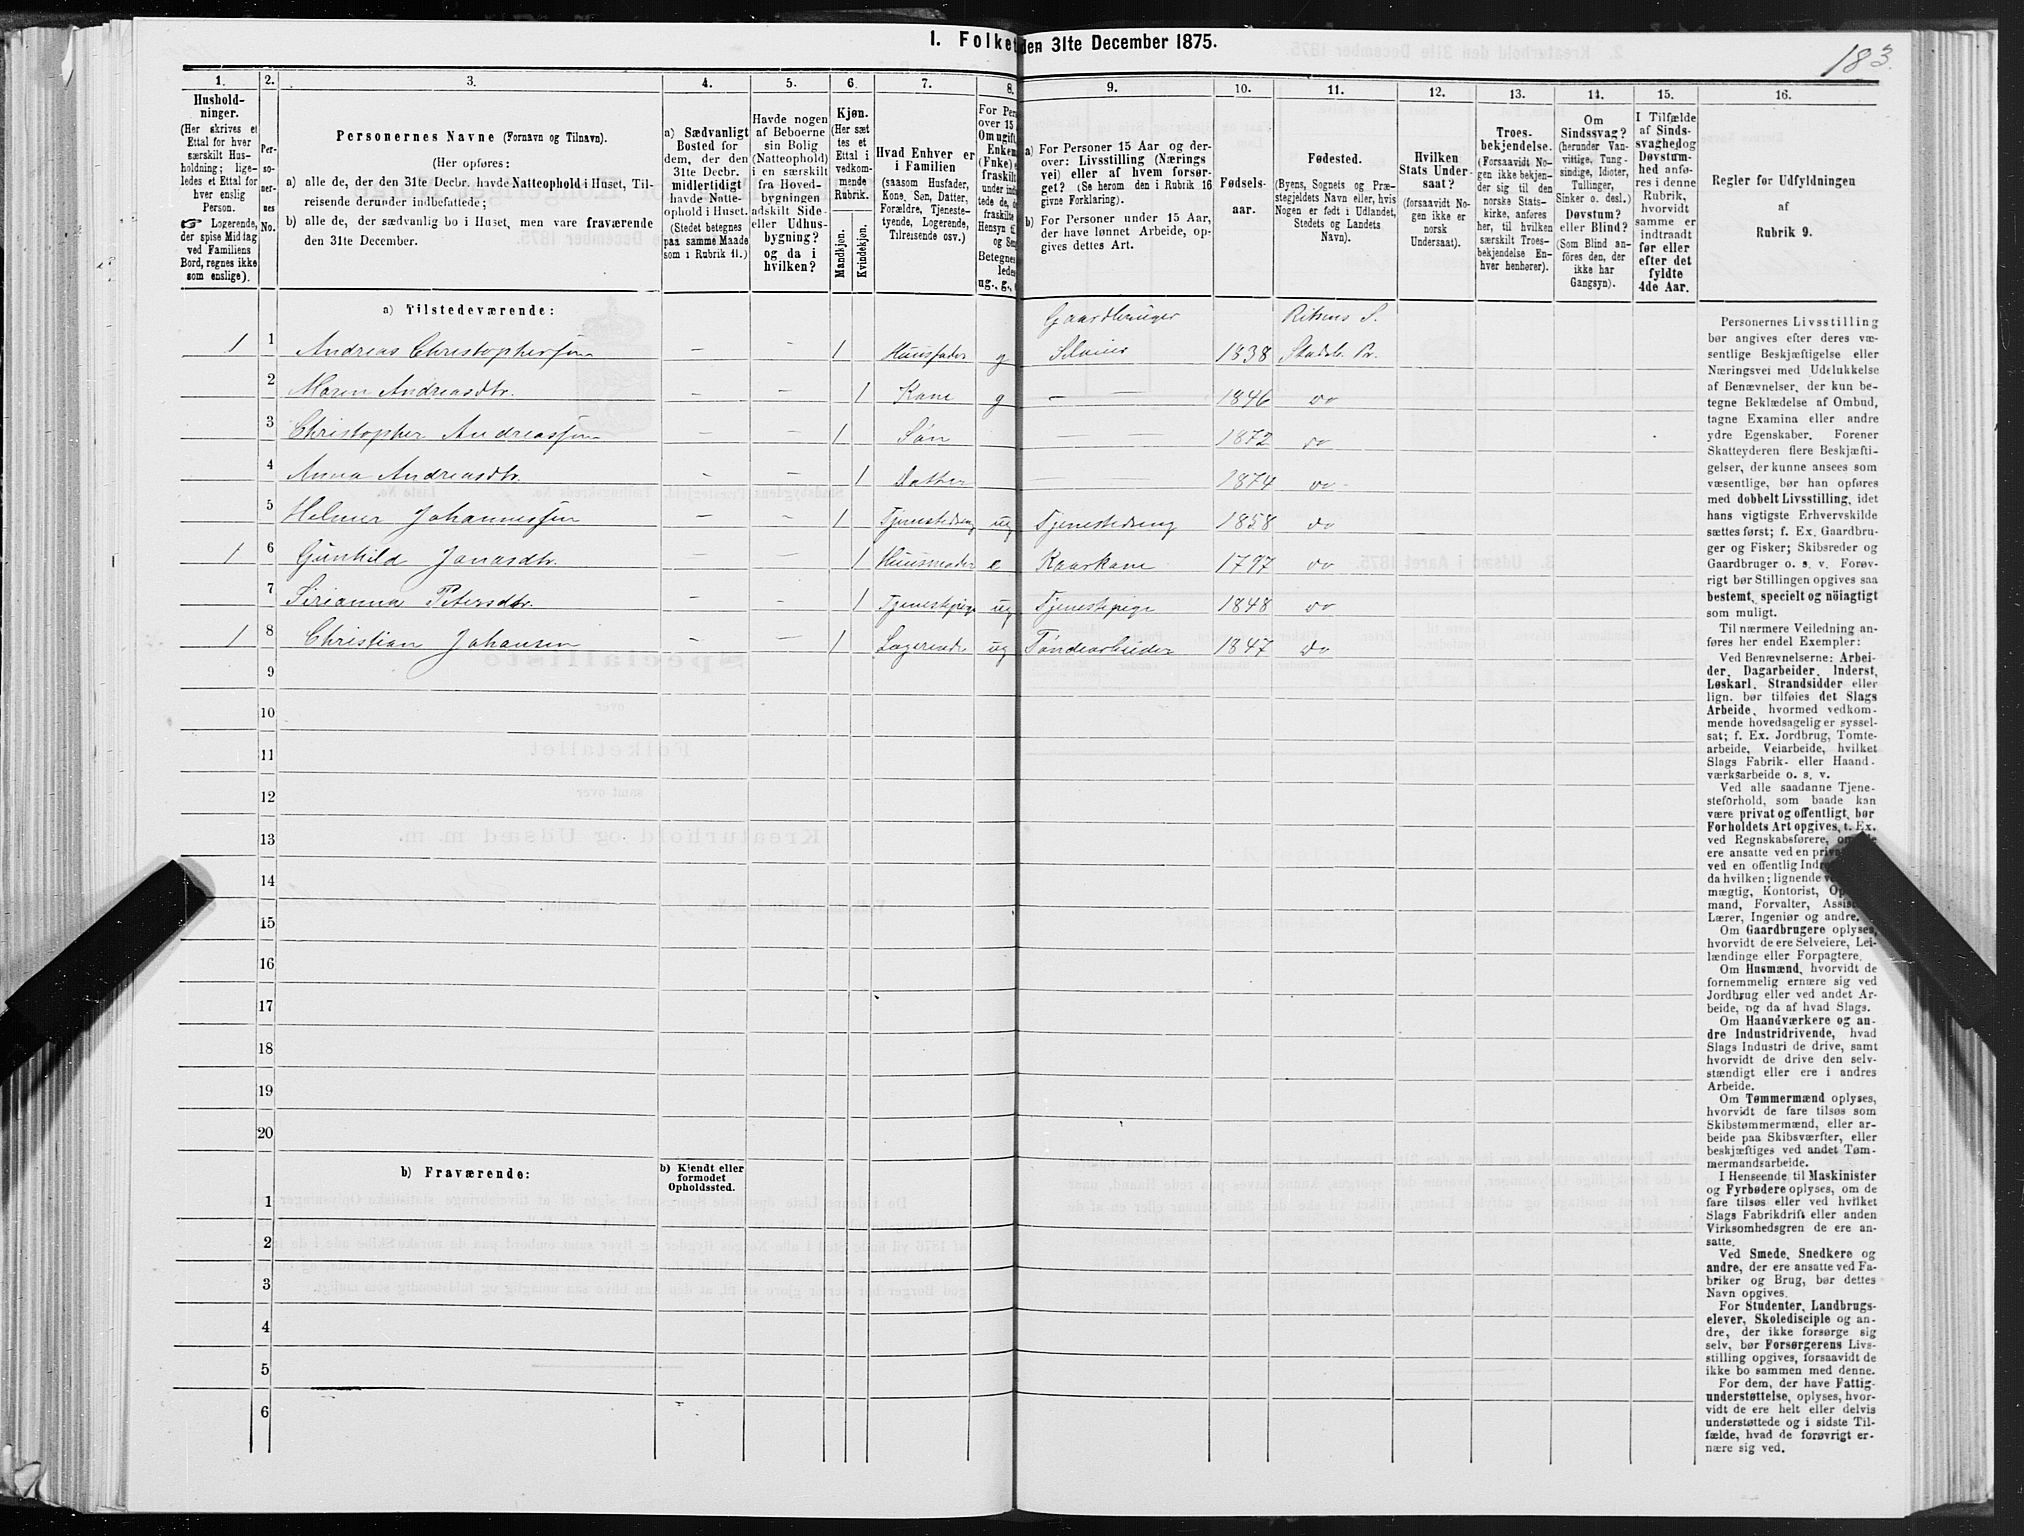 183.
1. Folket den 31te December 1875.
1. 2. 3. 4. 5. 6. 7. 8. 9. 10. 11. 12. 13. 14. 15. 16.
Hushold-
ninger.
(Her skrives et
Ettal for hver
særskilt Hus-
holdning; lige-
ledes et Ettal for
hver enslig
Person.
Logerende,
der spise Middag
ved Familiens
Bord, regnes ikke
som enslige).
Per-
so-
ner-
nes
No.
Personernes Navne (Fornavn og Tilnavn).
(Her opføres:
a) alle de, der den 31te Decbr. havde Natteophold i Huset, Til-
reisende derunder indbefattede;
b) alle de, der sædvanlig bo i Huset, men vare fraværende
den 31te December.
a) Sædvanligt
Bosted for
dem, der den
31te Decbr.
midlertidigt
havde Natte-
ophold i Huset.
(Stedet betegnes
paa samme Maade
som i Rubrik 11.)
Havde nogen
af Beboerne
sin Bolig
(Natteophold)
i en særskilt
fra Hoved-
bygningen
adskilt Side-
eller Udhus-
bygning?
og da i
hvilken?
Kjøn.
(Her sæt
tes et
Ettal i
vedkom-
mende
Rubrik.
Mandkjøn.
Kvindekjøn.
Hvad Enhver er
i Familien
(saasom Husfader,
Kone, Søn, Datter,
Forældre, Tjeneste-
tyende, Logerende,
Tilreisende osv.)
For Per
over 15
Om ugift,
Enkem
(Fnke) e
fraskilt
under inde
tede de, d
fraskilte
Hensyn ti
og Sen
Betegnes
ledes
ug., g.,
a) For Personer 15 Aar og der-
over: Livsstilling (Nærings
vei) eller af hvem forsør-
get? (Se herom den i Rubrik 16
givne Forklaring).
b) For Personer under 15 Aar,
der have lønnet Arbeide, op-
gives dettes Art.
Fødsels-
aar.
Fødested.
(Byens, Sognets og Præ-
stegjeldets Navn eller, hvis
Nogen er født i Udlandet,
Stedets og Landets
Navn).
Hvilken
Stats Under-
saat?
(forsaavidt No-
gen ikke er
norsk
Undersaat).
Troes-
bekjendelse.
(Forsaavidt No-
gen ikke bekjen-
der sig til den
norske Stats-
kirke, anføres
her, til hvilken
særskilt Troes-
bekjendelse En-
hver henhører).
Om
Sindssvag?
(herunder Van-
vittige, Tung-
sindige, Idioter,
Tullinger,
Sinker o. desl.)
Døvstum?
eller Blind?
(Som Blind an-
föres den, der
ikke har
Gangsyn).
I Tilfælde
af Sinds-
svaghed og
Døvstum-
hed anfø-
res i denne
Rubrik,
hvorvidt
samme er
indtraadt
før eller
efter det
fyldte
4de Aar.
Regler før Udfyldningen
af
Rubrik 9.
a) Tilstedeværende:
Gaardbruger Ritsens S.
1 1 Andreas Christophersen - - 1 Huusfader g Selveier 1838 Stadsb. Pr.
2 Maren Andreasdtr. - 1 Kone g - - 1846 do
3 Christopher Andreassen - - 1 Søn - - 1872 do
4 Anna Andreasdtr. - - 1 Datter - - 1874 do
5 Helmer Johannessen - - 1 Tjenestedreng ug Tjenestedreng 1858 do
1 6 Gunhild Jonasdtr. - - 1 Huusmoder e Kaarkone 1797 do
7 Sirianna Petersdtr. - - 1 Tjenestepige ug Tjenestepige 1848 do
1 8 Christian Johansen - - 1 Logerende ug Tøndearbeider 1847 do
9
10
11
12
13
14
15
16
17
18
19
20
b) Fraværende:
b) Kjendt eller
formodet
Opholdssted.
1
2
3
4
5
6
Personernes Livsstilling
bør angives efter deres væ-
sentlige Beskjæftigelse eller
Næringsvei med Udelukkelse
af Benævnelser, der kun be-
tegne Beklædelse af Ombud,
tagne Examina eller andre
ydre Egenskaber. Forener
Skatteyderen flere Beskjæfti-
gelser, der kunne ansees som
væsentlige, bør han opføres
med dobbelt Livsstilling, idet
hans vigtigste Erhvervskilde
sættes først; f. Ex. Gaardbru-
ger og Fisker; Skibsreder og
Gaardbruger o. s. v. Forøv-
rigt bør Stillingen opgives saa
bestemt, specielt og nöiagtigt
som muligt.
Til nærmere Veiledning an-
føres her endel Exempler:
Ved Benævnelserne: Arbei-
der, Dagarbeider, Inderst,
Løskarl, Strandsidder eller
lign. bør tilføies det Slags
Arbeide, hvormed vedkom-
mende hovedsagelig er syssel-
sat; f. Ex. Jordbrug, Tomte-
arbeide, Veiarbeide, hvilket
Slags Fabrik- eller Haand-
værksarbeide o. s. v.
Ved alle saadanne Tjene-
steforhold, som baade kan
være privat og offentligt, bør
Forholdets Art opgives, t. Ex.
ved Regnskabsførere, om de
ere ansatte ved en priv
ved en offentlig Indre
da hvilken; lignende ve
mægtig, Kontorist, Op
mand, Forvalter, Assist
Lærer, Ingeniør og andre.
Om Gaardbrugere oplyses,
hvorvidt de ere Selveiere, Lei-
lændinge eller Forpagtere.
Om Husmænd, hvorvidt de
fornemmelig ernære sig ved
Jordbrug eller ved andet Ar-
beide, og da af hvad Slags.
Om Haandværkere og an-
dre Industridrivende, hvad
Slags Industri de drive, samt
hvorvidt de drive den selv-
stændigt eller ere i andres
Arbeide.
Om Tømmermænd oplyses,
hvorvidt de fare tilsøs som
Skibstømmermænd, eller ar-
beide paa Skibsværfter, eller
beskjæftiges ved andet Tøm-
mermandsarbeide.
I Henseende til Maskinister
og Fyrbødere oplyses, om de
fare tilsøs eller ved hvilket
Slags Fabrikdrift eller anden
Virksomhedsgren de ere an-
satte.
Ved Smede, Snedkere og
andre, der ere ansatte ved Fa-
briker og Brug, bør dettes
Navn opgives.
For Studenter, Landbrugs-
elever, Skoledisciple og an-
dre, der ikke forsørge sig
selv, bør Forsørgerens Livs-
stilling opgives, forsaavidt de
ikke bo sammen med denne.
For dem, der have Fattig-
understøttelse, oplyses, hvor-
vidt de ere helt eller delvis
understøttede og i sidste Til-
fælde, hvad de forøvrigt er-
nære sig ved.